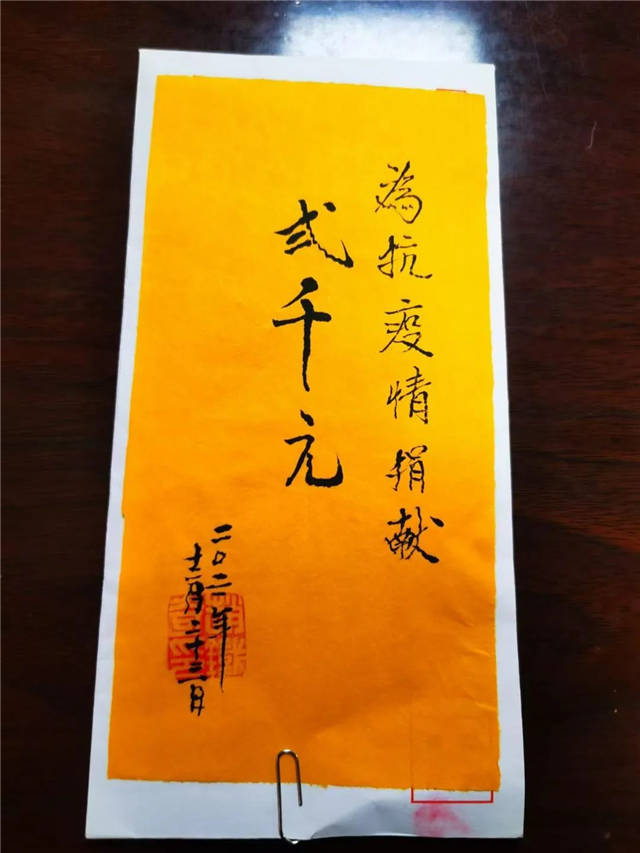 為抗疫情捐献
弍千元
二〇二一年
十二月二十三日